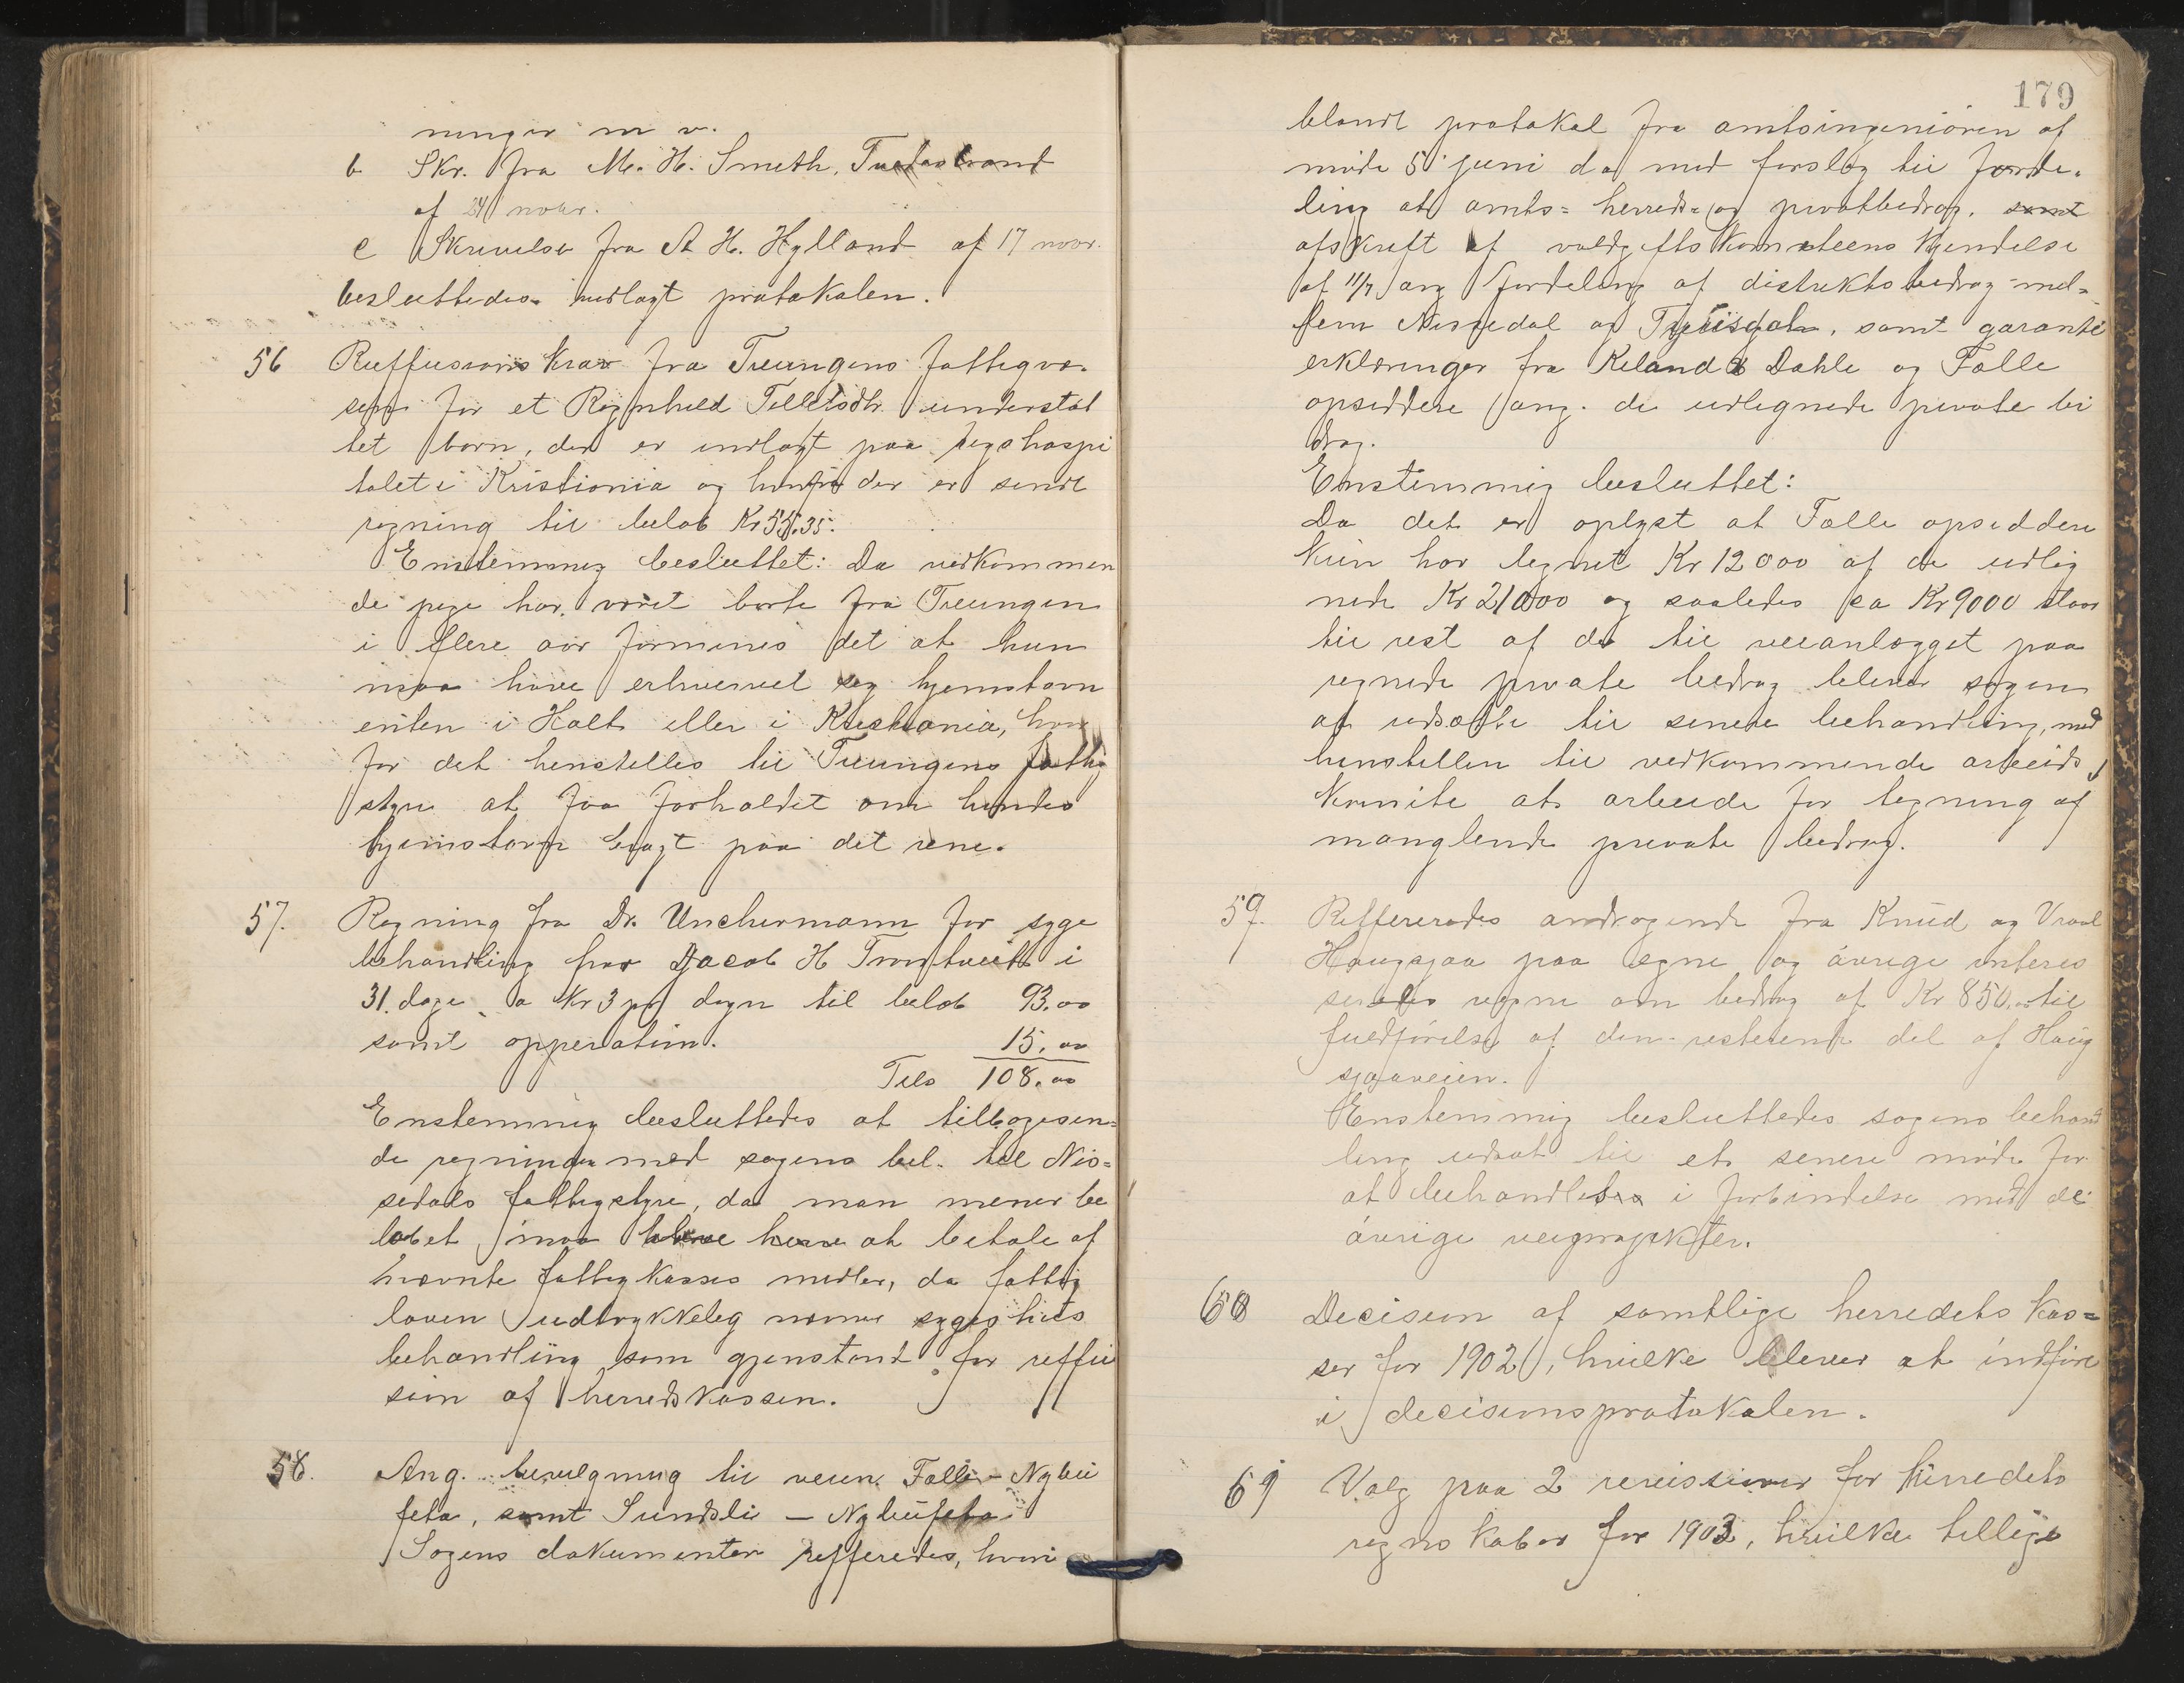 ninger m v.
b Skr. fra M. H. Smith, Tvedestrand
af 24 novbr.
c Skrivelse fra A H. Hylland af 17 novbr.
besluttedes nedlagt protokolen.
56 Reffusions krav fra Treungens fattigvæ-
sen for et Ragnhild Tellefsdtr. understøt
tet barn, der er indlagt paa rigshospi
talet i Kristiania og hvorfra der er sendt
regning til beløb Kr 55.35.
Enstemmig besluttet: Da vedkommen
de pige har været borte fra Treungen
i flere aar formenes det at hun
maa have erhvervet seg hjemstavn
enten i Holt eller i Kristiania, hvor
for det henstilles til Treungens fattig
styre at faa forholdet om hendes
hjemstavn bragt paa det rene.
57. Regning fra Dr. Uchermann for syge
behandling for Jacob H Tromtveit i
31. dage a Kr 3 pr døgn til beløb 93.00
samt opperation. 15.00
Tils 108.00
Enstemmig besluttedes at tilbagesen-
de regningen med sagens bil. til Nis-
sedals fattigstyre, da man mener be
løbet maa blive at betale af
nævnte fattigkasses midler, da fattig
loven udtrykkeleg nævner sygeshuts
behandling som gjenstand for reffu
sion af herredskassen.
58. Ang. bevilgning til veien Felle - Nybu
feta, samt Sundsli - Nybufeta
Sagens dokumenter refferedes, hvori
179
blandt protokol fra amtsingeniøren af
møde 5 juni d a med forslag til forde-
ling at amts- herreds- og privatbidrag, samt
afskrift af voldgiftskomiteens kjendelse
af 11/7 ang fordeling af distriktsbidrag mel-
lem Nissedal og Tørrisdal, samt garanti
erklæringer fra Keland & Dahle og Felle
opsiddere ang. de udlignede private bi
drag.
Enstemmig besluttet:
Da det er oplyst at Felle opsiddere
kun har tegnet Kr 12000 af de udlig
nede Kr 21000 og saaledes ca Kr 9000 staar
til rest af de til veianlægget paa
regnede private bidrag bliver sagen
at udsætte til senere behandling, med
henstillen til vedkommende arbeids
komite at arbeide for tegning af
manglende private bidrag.
59. Reffereredes andragende fra Knud og Vraal
Haugsjaa paa egne og øvrige interes
seredes vegne om bidrag af Kr 850.00 til
fuldførelse af den resterende del af Haug
sjaaveien.
Enstemmig besluttedes sagens behand
ling udsat til et senere møde for
at behandles i forbindelse med de
øvrige veiprojekter.
60 Decision af samtlige herredets kas-
ser for 1902, hvilke bliver at indføre
i decisionsprotokolen.
61 Valg paa 2 revisorer for herredets
regnskaber for 1903, hvilke tillige